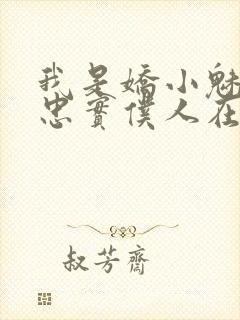 我是嬌小魅
忠實僕人在
叔芳齋